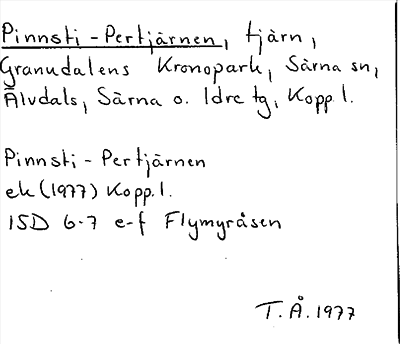 Pinnsti-Pertjärnen, tjärn,
Granudalens Kronopark, Särna sn,
Älvdals, Särna o. Idre tg, Kopp.l.
Pinnsti-Pertjärnen
ek (1977) Kopp.l.
15D 6-7 e-f Flymyråsen
T.Å.1977